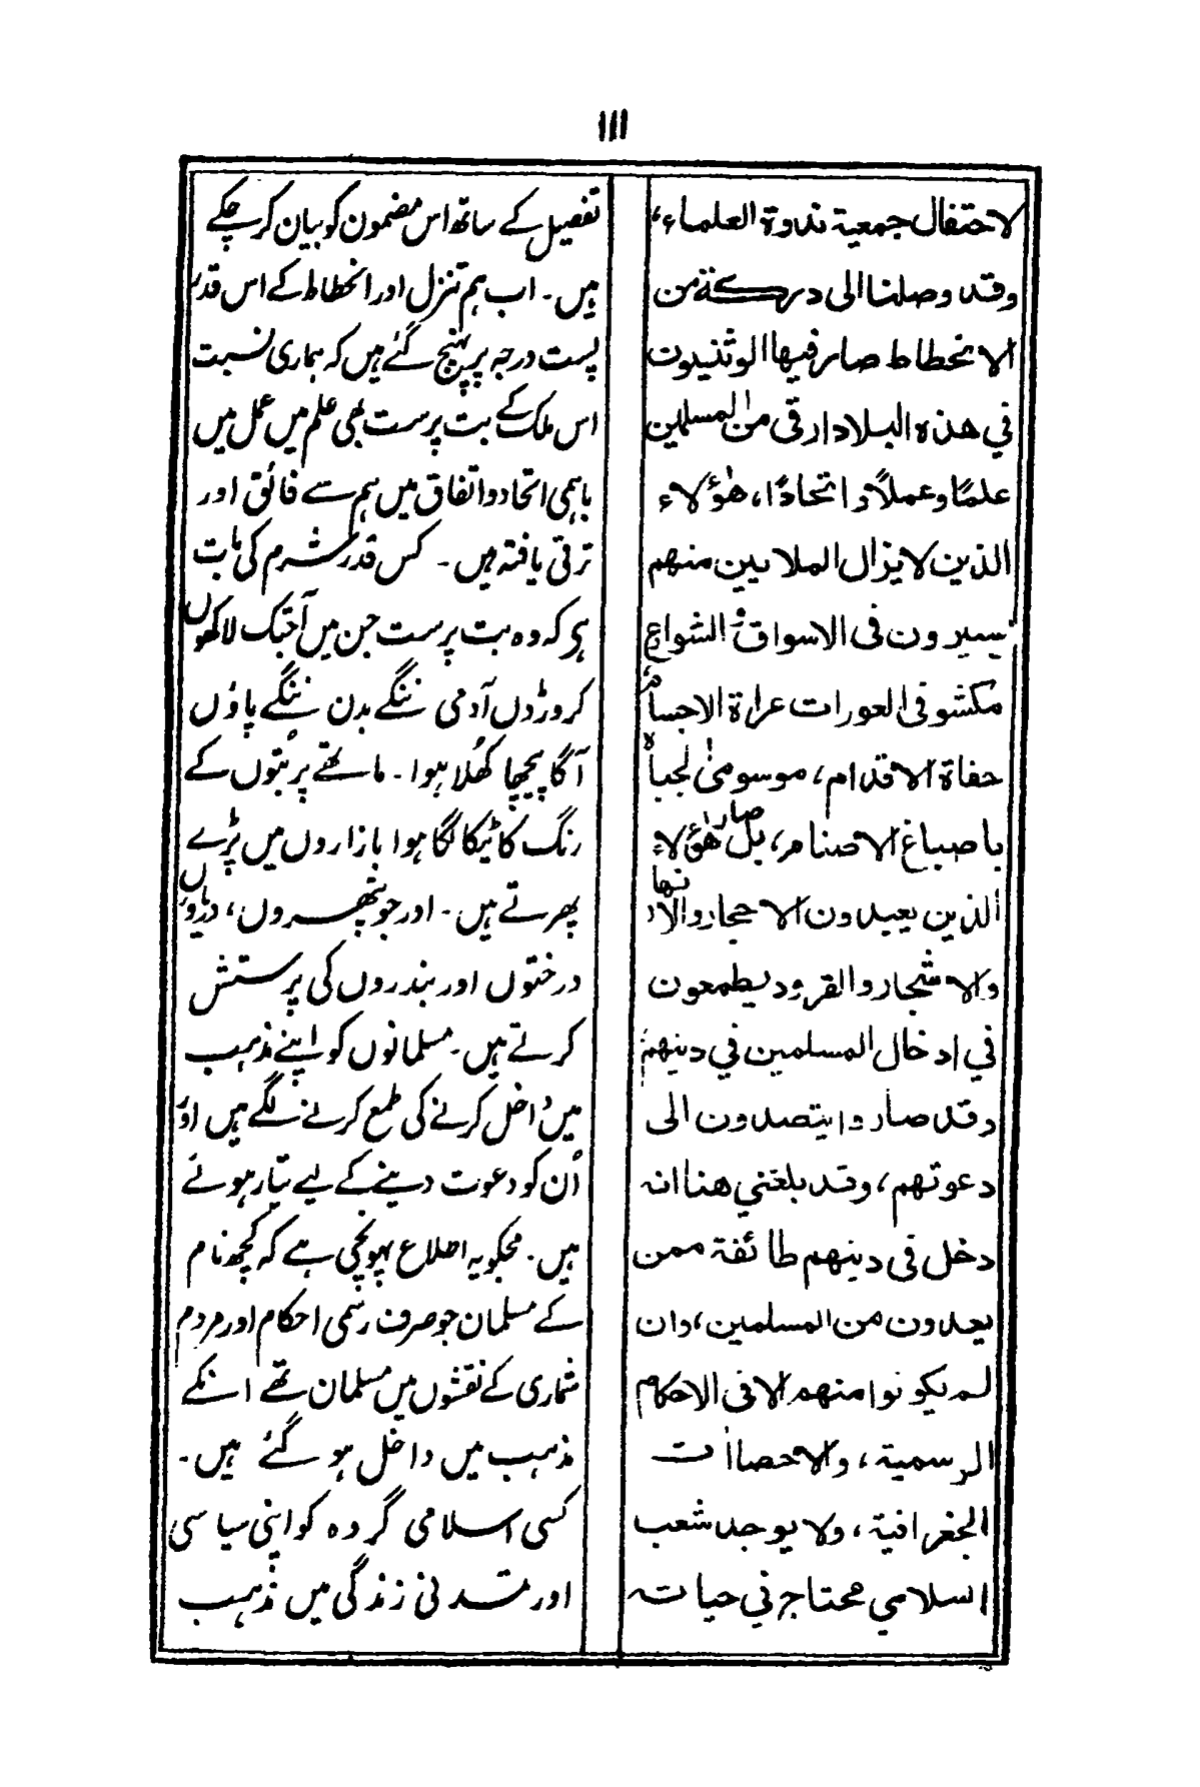 ۱۱۱
لاحتفال جمعية ندوة العلماء،
وقد وصلنا الى دركة من
الانحطاط صار فيها الوثنيون
في هذه البلاد ارقى من المسلمين
علمًا وعملاً واتحادًا، هٰؤلاء
الذين لا يزال الملايين منهم
يسيرون فى الاسواق والشوارع
مكشوفى العورات عراة الاجسام،
حفاة الاقدام، موسومىٰ لجباه
باصباغ الاصنام، بل صار هٰؤلاء
الذين يعبدون الاحجار والانهار
والاشجار والقرود يطمعون
في ادخال المسلمين في دينهم
وقد صاروا يتصدون الى
دعوتهم، وقد بلغني هنا انه
دخل فى دينهم طائفة ممن
يعدون من المسلمين، وان
لم يكونوا منهم الا فى الاحكام
الرسمية، والاحصاأت
الجغرافية، ولا يوجد شعب
اسلامي محتاج في حياته
تفصیل کے ساتھ اس مضمون کو بیان کر چکے
ہیں۔ اب ہم تنزل اور انحطاط کے اس قدر
پست درجہ پر پہنچ گئے ہیں کہ ہماری نسبت
اس ملک کے بت پرست بھی علم میں عمل میں
باہمی اتحاد و اتفاق میں ہم سے فائق اور
ترقی یافتہ ہیں۔ کس قدر شرم کی بات
ہی کہ وہ بت پرست جن میں آجتک لاکھوں
کروڑوں آدمی ننگے بدن ننگے پاؤں
آگا پیچھا کھُلا ہوا۔ ماتھے پر بتوں کے
رنگ کا ٹیکا لگا ہوا بازاروں میں پڑے
پھرتے ہیں۔ اور جو پتھروں، دریاؤں
درختوں اور بندروں کی پرستش
کرتے ہیں۔ مسلمانوں کو اپنے مذہب
میں داخل کرنے کی طمع کرنے لگے ہیں اور
اُن کو دعوت دینے کے لیے تیار ہوئے
ہیں۔ مجکو یہ اطلاع پہونچی ہے کہ کچھ نام
کے مسلمان جو صرف رسمی احکام اور مردم
شماری کے نقشوں میں مسلمان تھے انکے
مذہب میں داخل ہو گئے ہیں۔
کسی اسلامی گروہ کو اپنی سیاسی
اور تمدنی زندگی میں مذہب